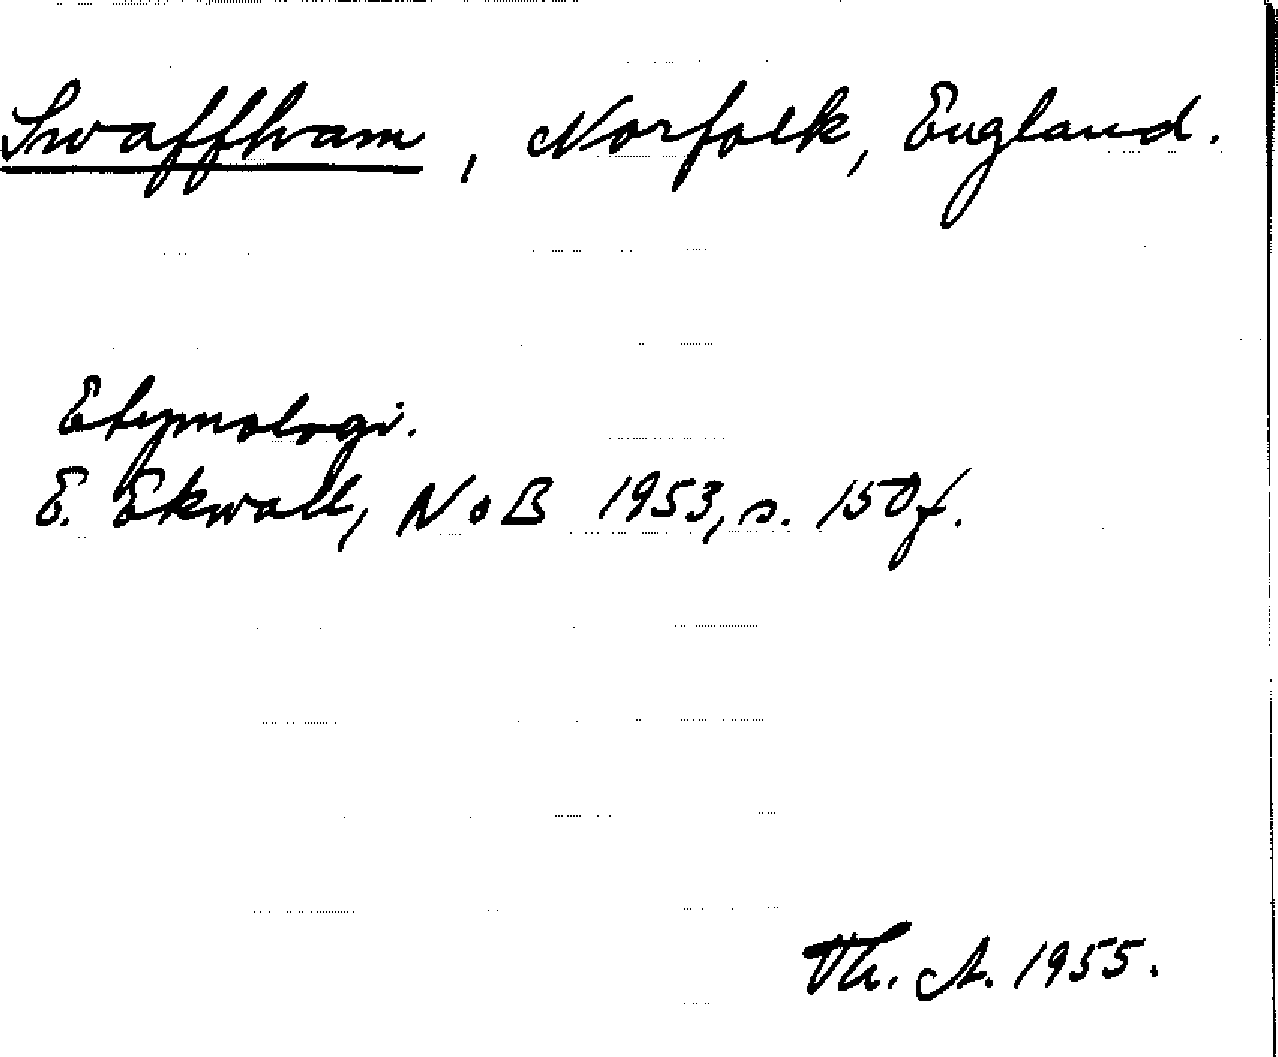 Swaffham, Norfolk, England.
Etymologi.
E. Ekwall, NoB 1953, s. 150f.
Th. A. 1955.